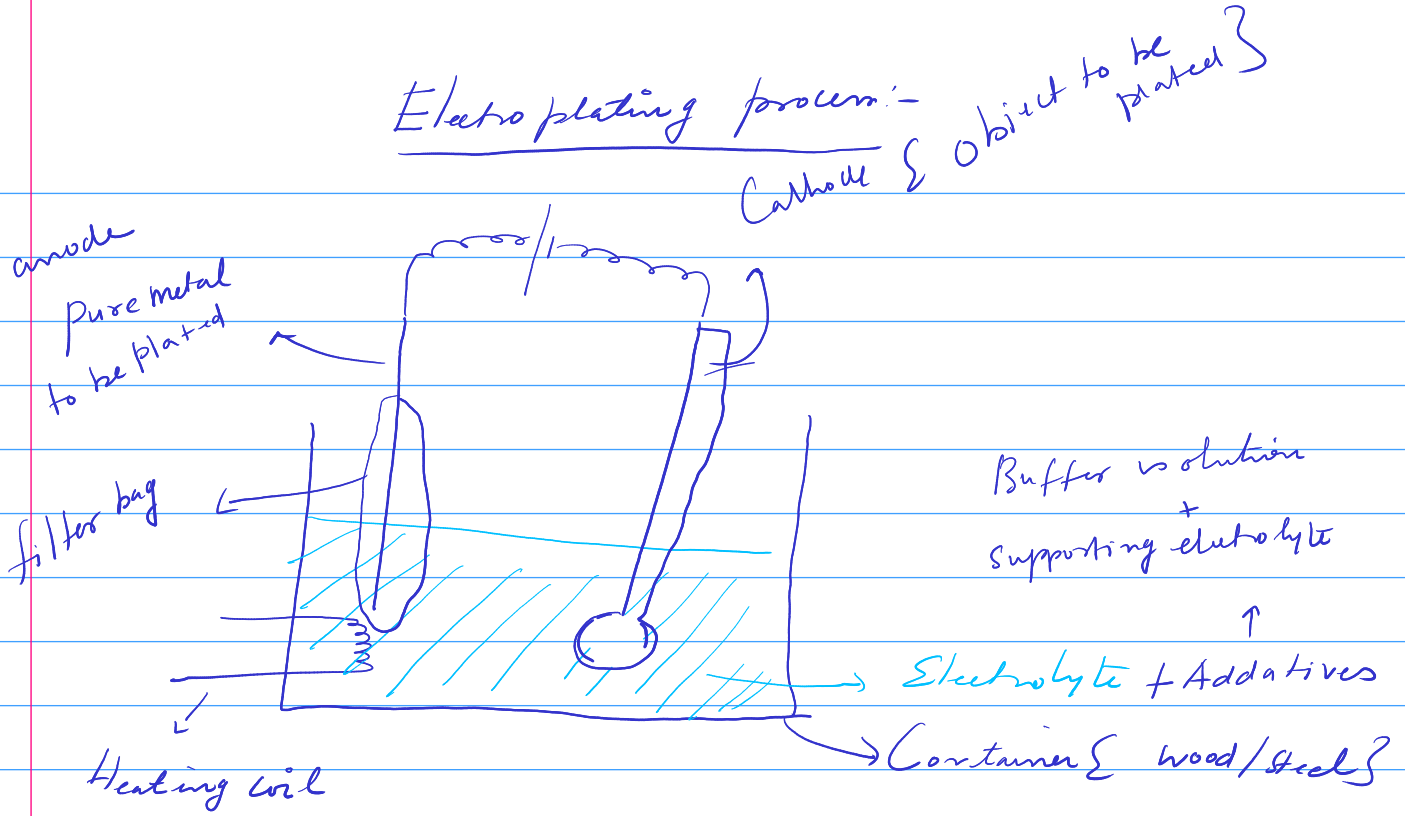 Electroplating process:-
Cathode { Object to be
plated }
anode
Pure metal
to be plated
filter bag
Buffer solution
+
supporting electrolyte
Electrolyte + Addatives
Container { wood/steel }
Heating coil